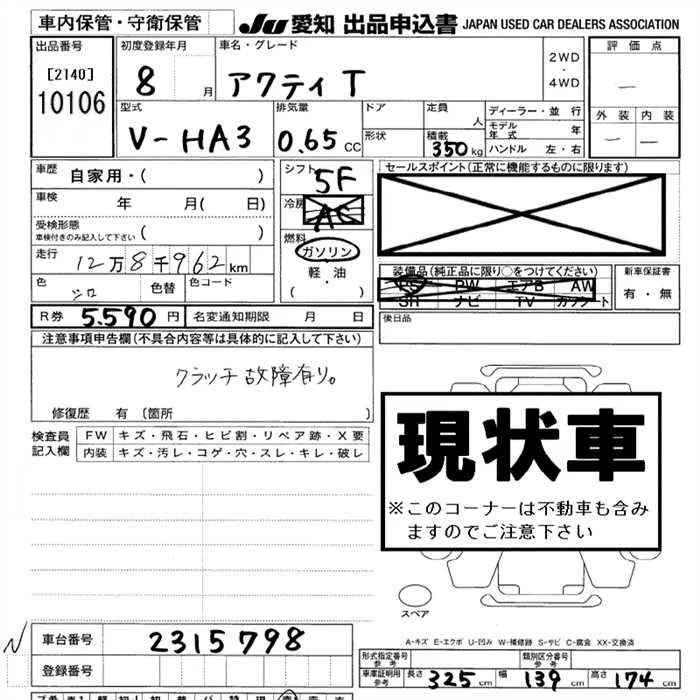 車内保管・守衛保管
JU 愛知 出品申込書 JAPAN USED CAR DEALERS ASSOCIATION
出品番号
[2140]
10106
初度登録年月
8 月
車名・グレード
アクティ T
2WD
・
4WD
評価点
—
外装 内装
— —
型式
V-HA3
排気量
0.65 CC
ドア
形状
定員 人
積載 350 kg
ディーラー・並 行
モデル年式 年
ハンドル 左・右
車歴 自家用・( )
車検 年 月( 日)
受検形態
車検付きのみ記入して下さい ( )
走行 12万8千962km
色 シロ 色替 色コード
シフト 5F
冷房 AC
燃料
ガソリン
軽・油
( )
セールスポイント(正常に機能するものに限ります)
装備品(純正品に限り○をつけてください)
PS PW エアB AW
SR ナビ TV カワシート
新車保証書
有・無
R券 5.590 円 名変通知期限 月 日
後日品
注意事項申告欄(不具合内容等は具体的に記入して下さい)
クラッチ故障有り。
修復歴 有 〔箇所 〕
検査員記入欄
FW キズ・飛石・ヒビ割・リペア跡・X要
内装 キズ・汚レ・コゲ・穴・スレ・キレ・破レ
現状車
※このコーナーは不動車も含み
ますのでご注意下さい
スペア
A-キズ E-エクボ U-凹み W-補修跡 S-サビ C-腐食 XX-交換済
N
車台番号 2315798
登録番号
形式指定番号
参考
類別区分番号
参考
車庫証明用
参考
長さ 325 cm 幅 139 cm 高さ 174 cm